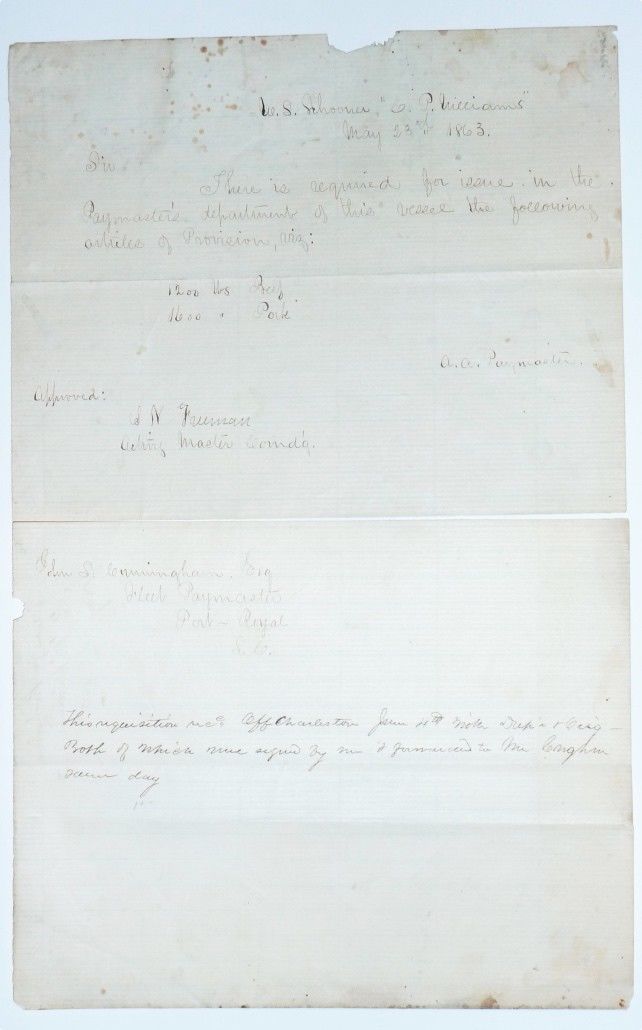 U.S. Schooner "C. P. Williams"
May 23rd 1863.
Sir
There is required for issue in the
Paymaster's department of this vessel the following
articles of Provision, viz:
1200 lbs Beef
1600 " Pork
A.A. Paymaster.
Approved:
S N Freeman
Acting Master Comd'g.
John S. Cunningham, Esq
Fleet Paymaster
Port Royal
S.C.
This requisition recd Off Charleston June 11th with Dup'e & Orig
Both of which were signed by me & forwarded to Mr
same day